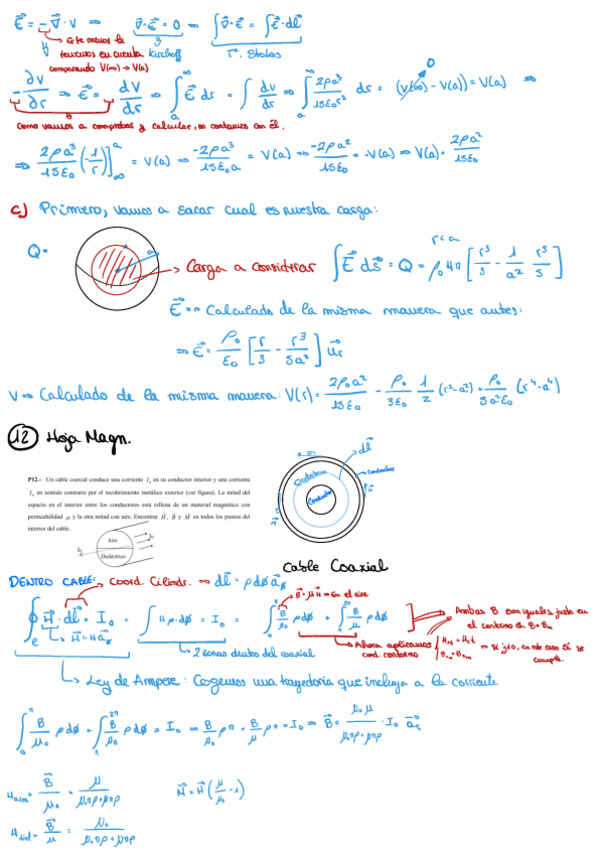 E⃗ = -∇⃗·V ⇒ ∇⃗·E⃗ = 0 ⇒ ∫∇⃗·E⃗ = ∫E⃗·dl⃗
este menos lo
tenemos en cuenta Kirchoff Tª. Stokes
comparando V(∞) → V(a)
-∂V/∂r ⇒ E⃗ = dV/dr ⇒ ∫ₐ^∞ E⃗ dr = ∫ dV/dr ⇒ ∫ₐ^∞ 2ρa³/15ε₀r² dr = (V(∞) - V(a)) = V(a) ⇒
0
Como vamos a comprobar y calcular, no contamos con él.
⇒ 2ρa³/15ε₀ (-1/r)^a_∞ = V(a) ⇒ -2ρa³/15ε₀a = V(a) ⇒ -2ρa²/15ε₀ = -V(a) ⇒ V(a) = 2ρa²/15ε₀
c) Primero, vamos a sacar cual es nuestra carga:
r<a
Q= a → Carga a considerar ∫E⃗ ds⃗ = Q = ρ₀4π [r³/3 - 1/a² r⁵/5]
E⃗ ⇒ Calculado de la misma manera que antes:
⇒ E⃗ = ρ₀/ε₀ [r/3 - r³/5a²] u⃗r
V ⇒ Calculado de la misma manera: V(r) = 2ρ₀a²/15ε₀ - ρ₀/3ε₀ 1/2 (r²-a²) + ρ₀/5a²ε₀ (r⁴-a⁴)
12 Hoja Magn.
P12.- Un cable coaxial conduce una corriente I₀ en su conductor interior y una corriente
I₀ en sentido contrario por el recubrimiento metálico exterior (ver figura). La mitad del
espacio en el interior entre los conductores está rellena de un material magnético con
permeabilidad μ y la otra mitad con aire. Encontrar H⃗, B⃗ y M⃗ en todos los puntos del
interior del cable.
Aire
Dieléctrico
I₀
dl⃗
Conductor
Dieléctrico
Conductor
Cable Coaxial
DENTRO CABLE: → Coord. Cilíndr. ⇒ dl⃗ = ρdø a⃗ø
B⃗ = μH⃗ ⇒ En el aire
∮ H⃗·dl⃗ = I₀ = ∫Hρdø = I₀ = ∫ B/μ₀ ρdø + ∫ B/μ ρdø
Ambas B son iguales, justo en
el contorno B=Bm
→ 2 zonas dentro del coaxial
→ Ahora aplicamos
cond. contorno
⇒ Si j=0, en este caso sí se
cumple.
→ Ley de Ampere: Cogemos una trayectoria que incluya a la corriente
∫₀^π B/μ₀ ρdø + ∫_π^2π B/μ₀ ρdø = I₀ ⇒ B/μ₀ ρπ + B/μ ρπ = I₀ ⇒ B⃗ = μ₀μ/μ₀πρ+μπρ · I₀ a⃗r
Haire = B⃗/μ₀ = μ/μ₀πρ+μπρ M⃗ = H⃗(μ/μ₀ - 1)
Hdiel = B⃗/μ = μ₀/μ₀πρ+μπρ